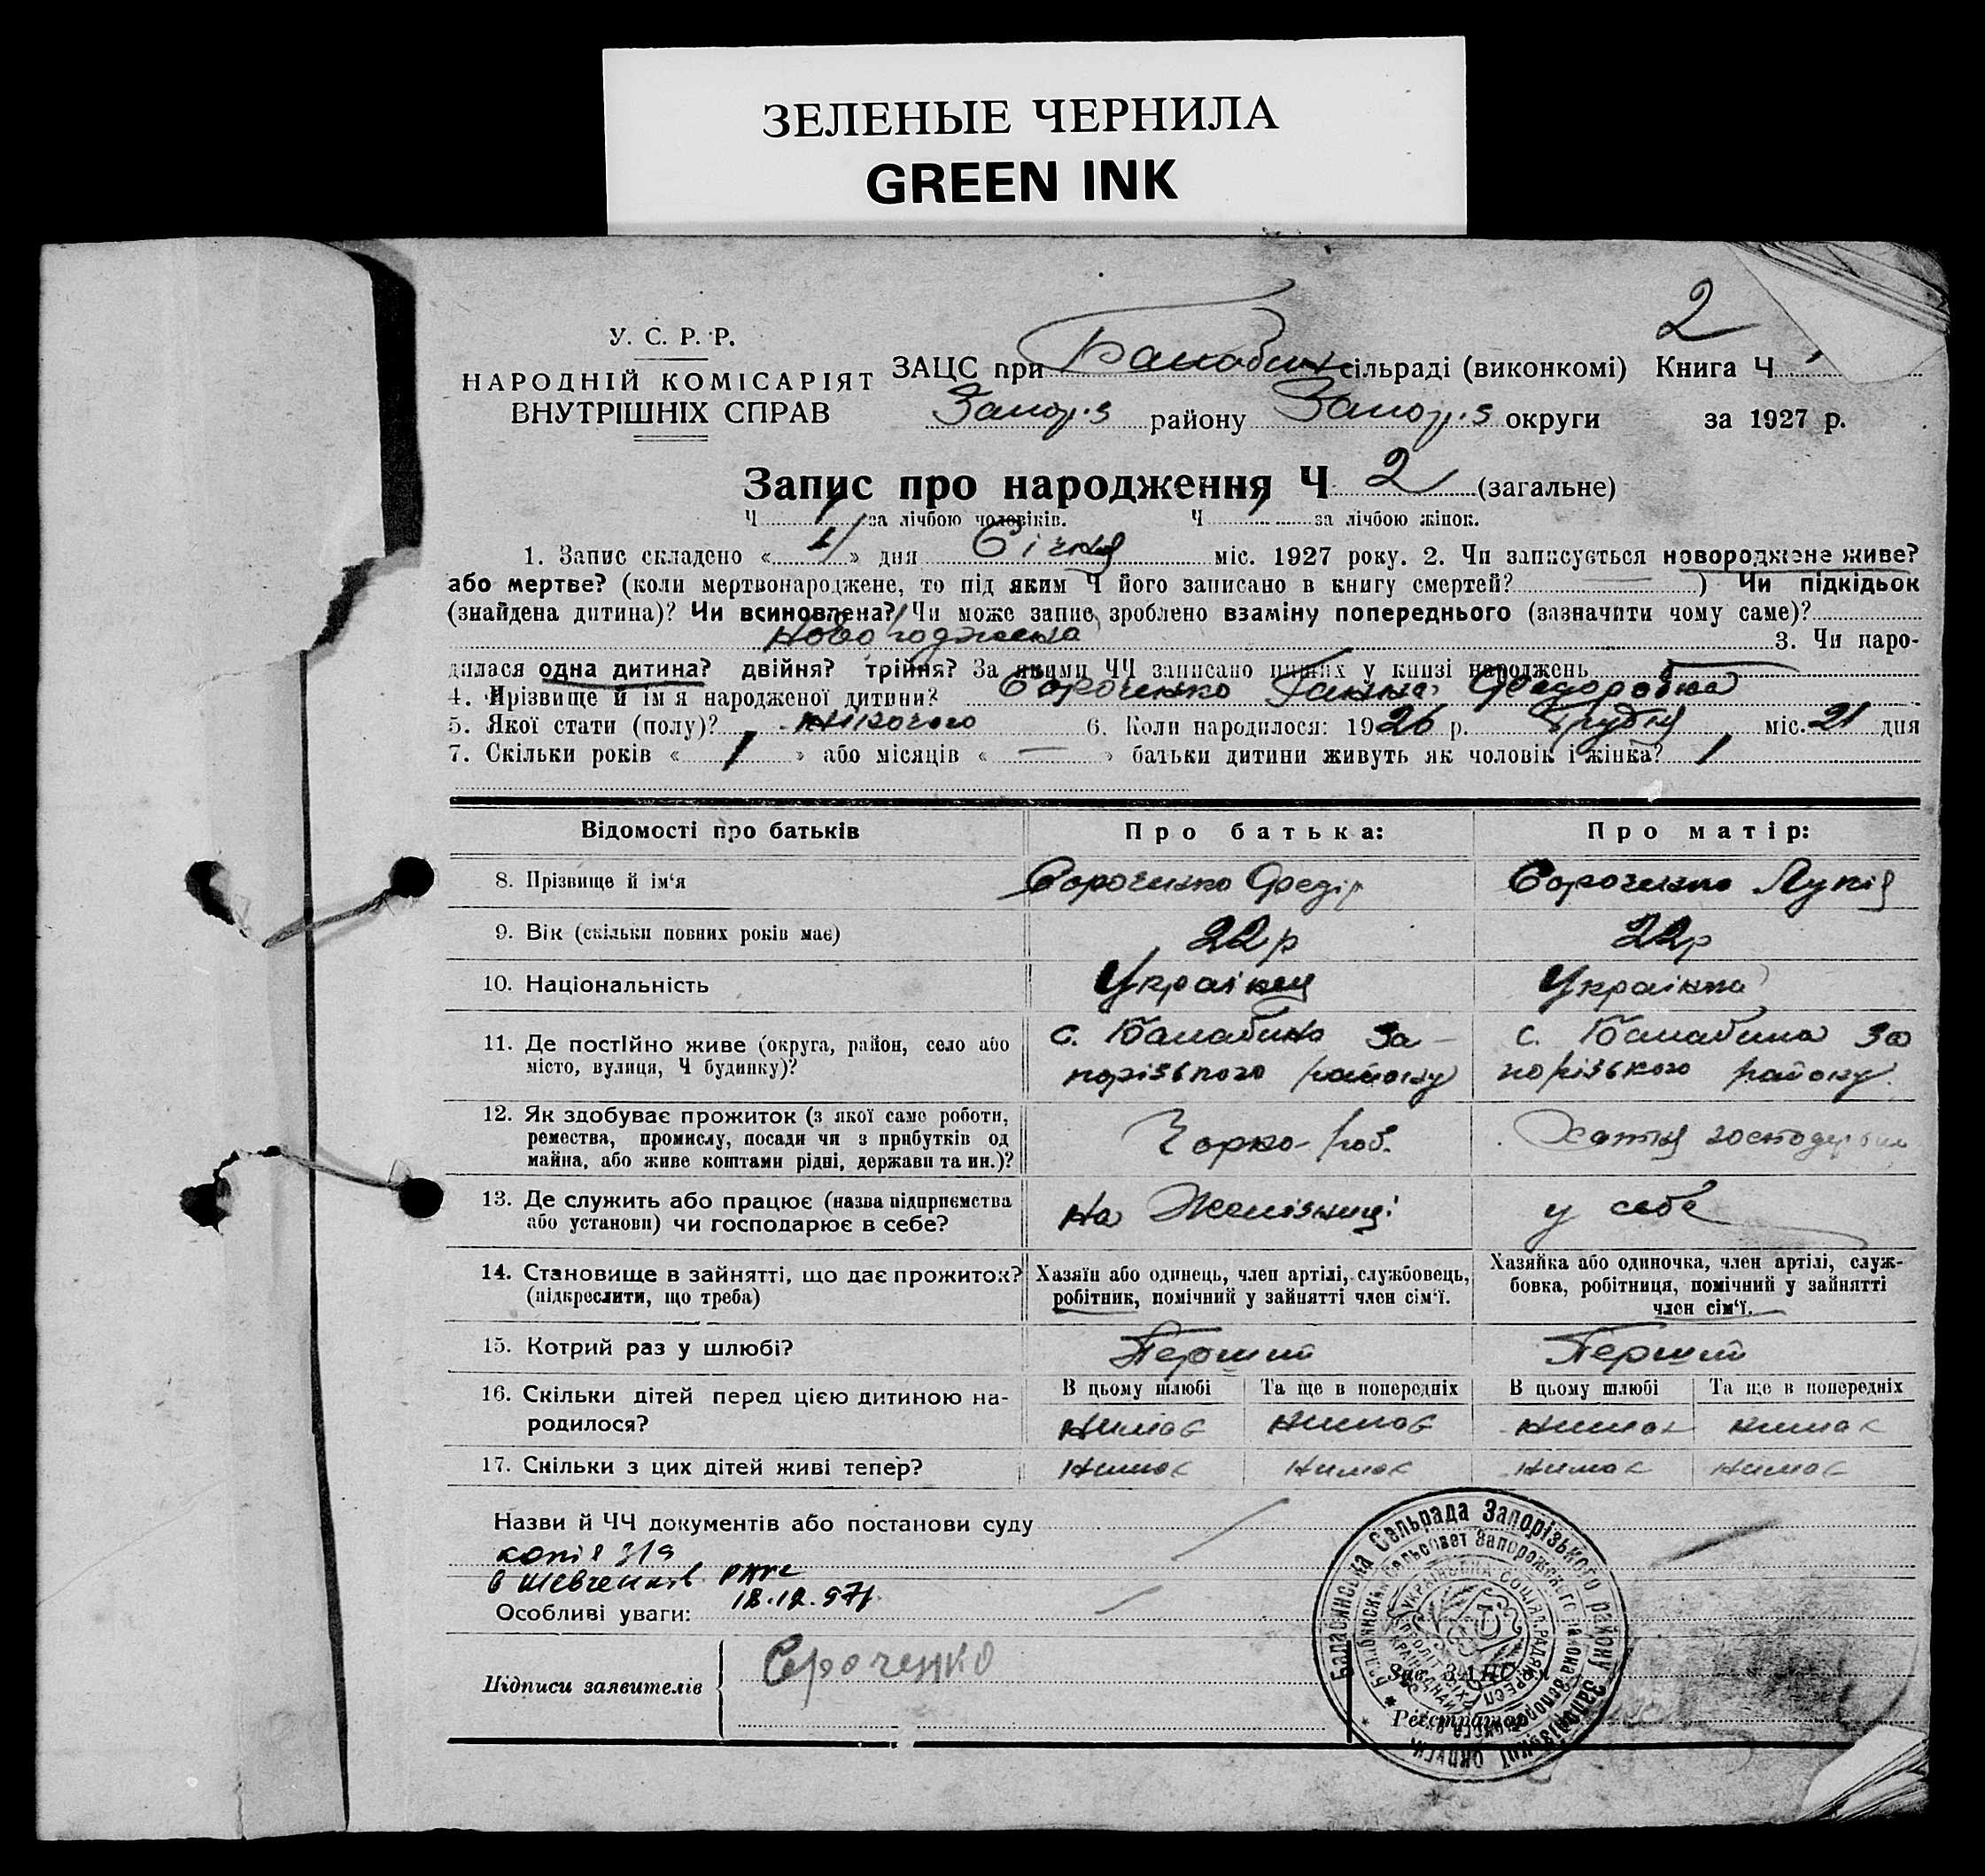 ЗЕЛЕНЫЕ ЧЕРНИЛА
GREEN INK
2
У. С. Р. Р.
НАРОДНІЙ КОМІСАРІЯТ
ВНУТРІШНІХ СПРАВ
ЗАЦС при Балабин сільраді (виконкомі) Книга Ч
Запор.з району Запор.з округи за 1927 р.
Запис про народження Ч 2 (загальне)
Ч за лічбою чоловіків. Ч 1 за лічбою жінок.
1. Запис складено « 1 » дня Січня міс. 1927 року. 2. Чи записується новороджене живе?
або мертве? (коли мертвонароджене, то під яким Ч його записано в книгу смертей? — ) Чи підкідьок
(знайдена дитина)? Чи всиновлена? Чи може запис зроблено взаміну попереднього (зазначити чому саме)?
новороджена 3. Чи наро-
дилася одна дитина? двійня? трійня? За якими ЧЧ записано инших у книзі народжень —
4. Прізвище й ім'я народженої дитини? Сороченко Ганна Федоровна
5. Якої стати (полу)? жіночого 6. Коли народилося: 1926 р. Грудня міс. 21 дня
7. Скільки років « 1 » або місяців « — » батьки дитини живуть як чоловік і жінка? 1
Відомості про батьків Про батька: Про матір:
8. Прізвище й ім'я Сороченко Федір Сороченко Лукія
9. Вік (скільки повних років має) 22 р 22 р
10. Національність Українец Українка
11. Де постійно живе (округа, район, село або
місто, вулиця, Ч будинку)?
с. Балабино За-
порізького району
с. Балабина За
порізького району
12. Як здобуває прожиток (з якої саме роботи,
ремества, промислу, посади чи з прибутків од
майна, або живе коштами рідні, держави та ин.)?
Чорно-роб.
Хатня господарка
13. Де служить або працює (назва підприємства
або установи) чи господарює в себе?
на Желізниці
у себе
14. Становище в зайнятті, що дає прожиток?
(підкреслити, що треба)
Хазяїн або одинець, член артілі, службовець,
робітник, помічний у зайнятті член сім'ї.
Хазяйка або одиночка, член артілі, служ-
бовка, робітниця, помічний у зайнятті
член сім'ї.
15. Котрий раз у шлюбі? Перший Перший
16. Скільки дітей перед цією дитиною на-
родилося?
В цьому шлюбі Та ще в попередніх В цьому шлюбі Та ще в попередніх
Нимає Нимає Нимає Нимає
17. Скільки з цих дітей живі тепер? Нимає Нимає Нимає Нимає
Назви й ЧЧ документів або постанови суду
копія
в Шевченків
18.12.57г
Особливі уваги:
Підписи заявителів Сороченко
Зав. ЗАЦС'ом
Реєстратор
Балабинська Сельрада Запорізького району Запорізької округи